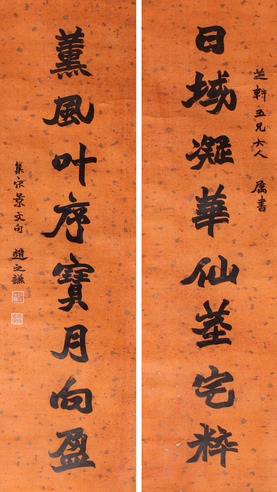 芝軒五兄大人 屬書
日域凝華仙莖宅粹
薰風叶序寶月向盈
集宋景文句 趙之謙